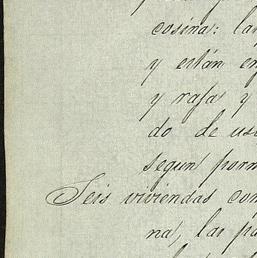 cosina: la
y están en
y rafa y
do de us
segun porm
Seis viviendas con
na, las pa